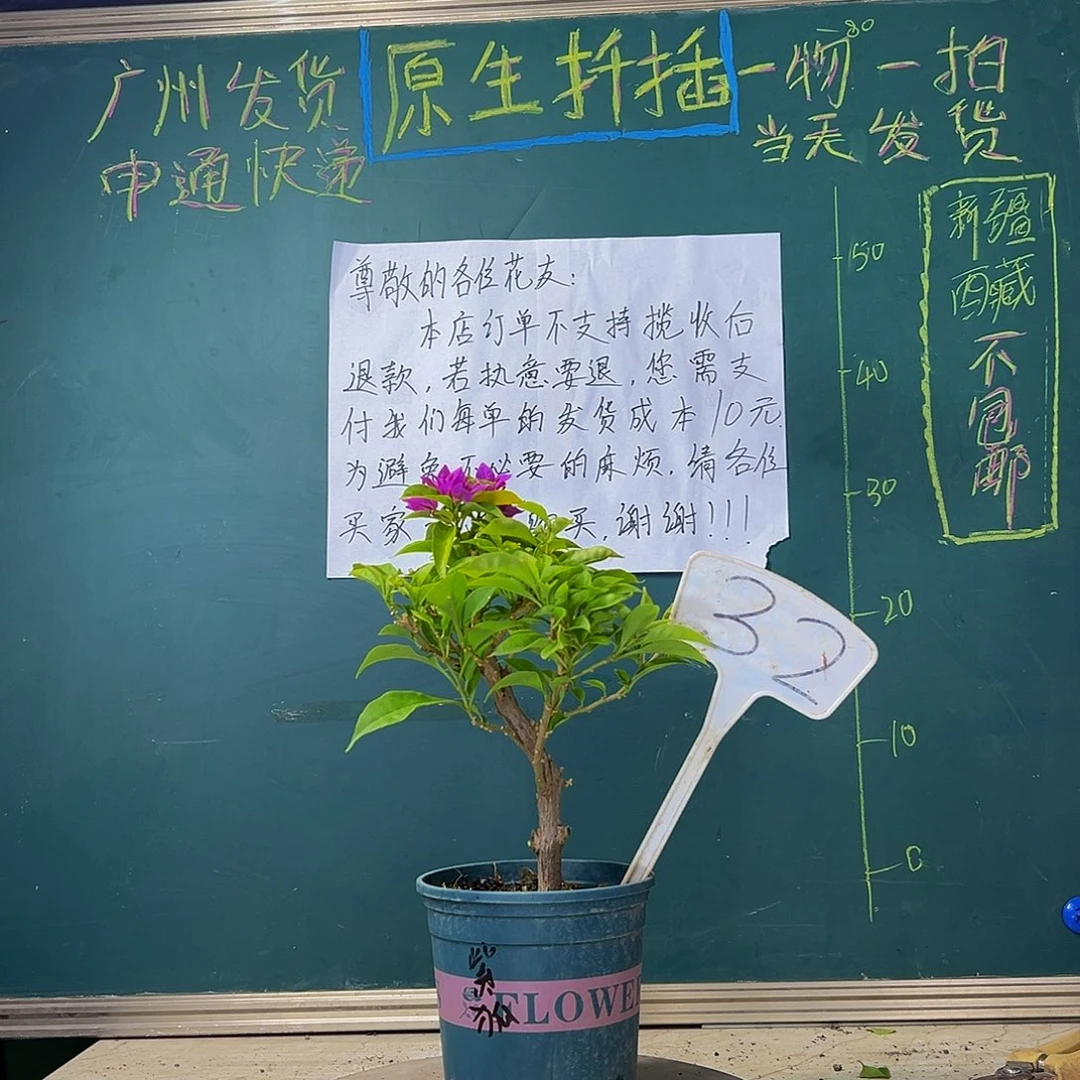 广州发货
申通快递
原生扦插
一物一拍
80
当天发货
新疆
西藏
不包邮
50
40
30
20
10
0
尊敬的各位花友：
本店订单不支持揽收后
退款，若执意要退，您需支
付我们每单的发货成本10元
为避免不必要的麻烦，请各位
买家 买，谢谢!!!
32
紫
FLOWE